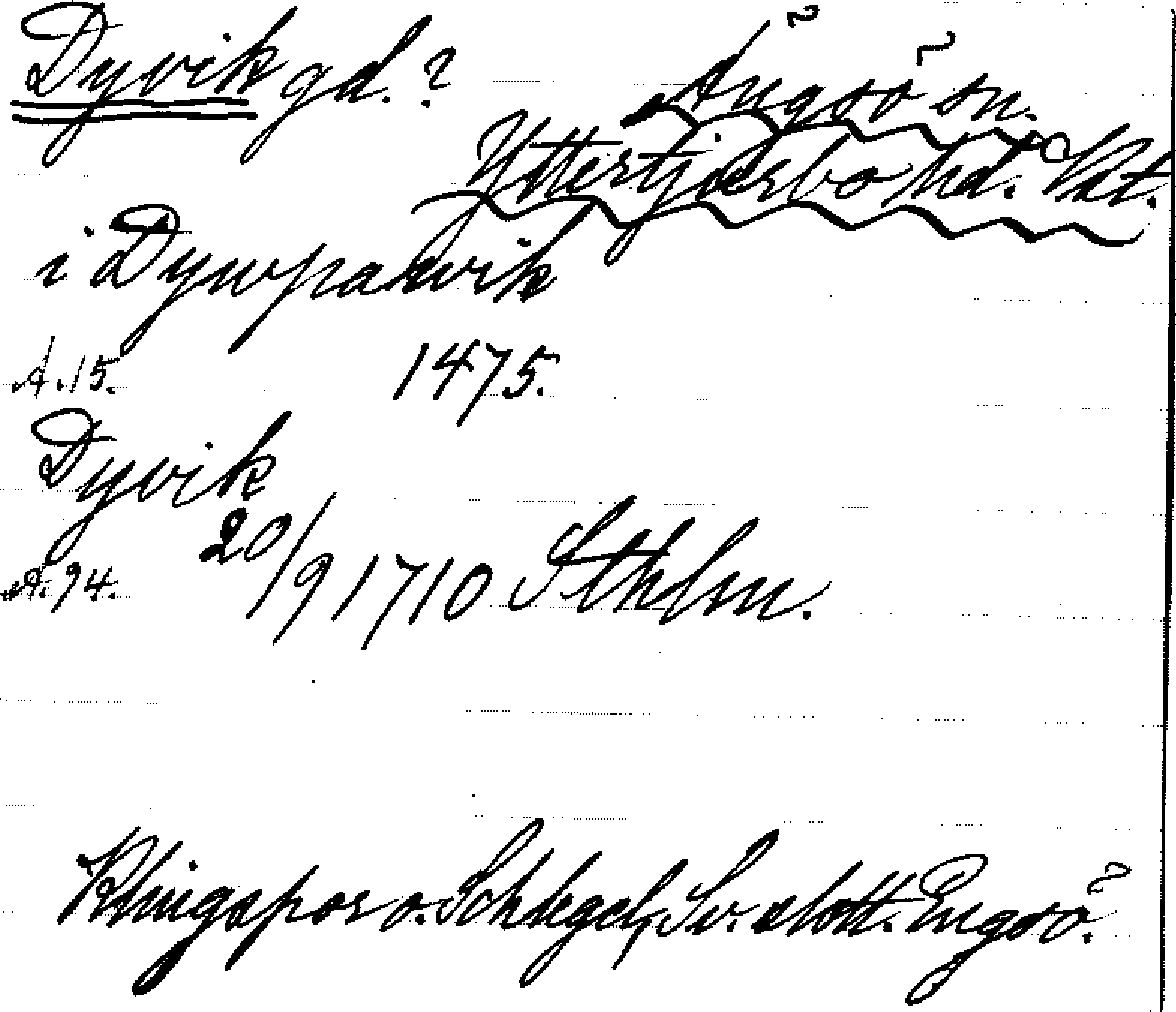 Dyvik gd.? Ängsö sn.
Yttertjurbo hd. Vst.
i Dywpawik
A. 15. 1475.
Dyvik
A. 94. 20/9 1710 Sthlm.
Klingspor o. Schlegel, Sv. slott. Engsö.